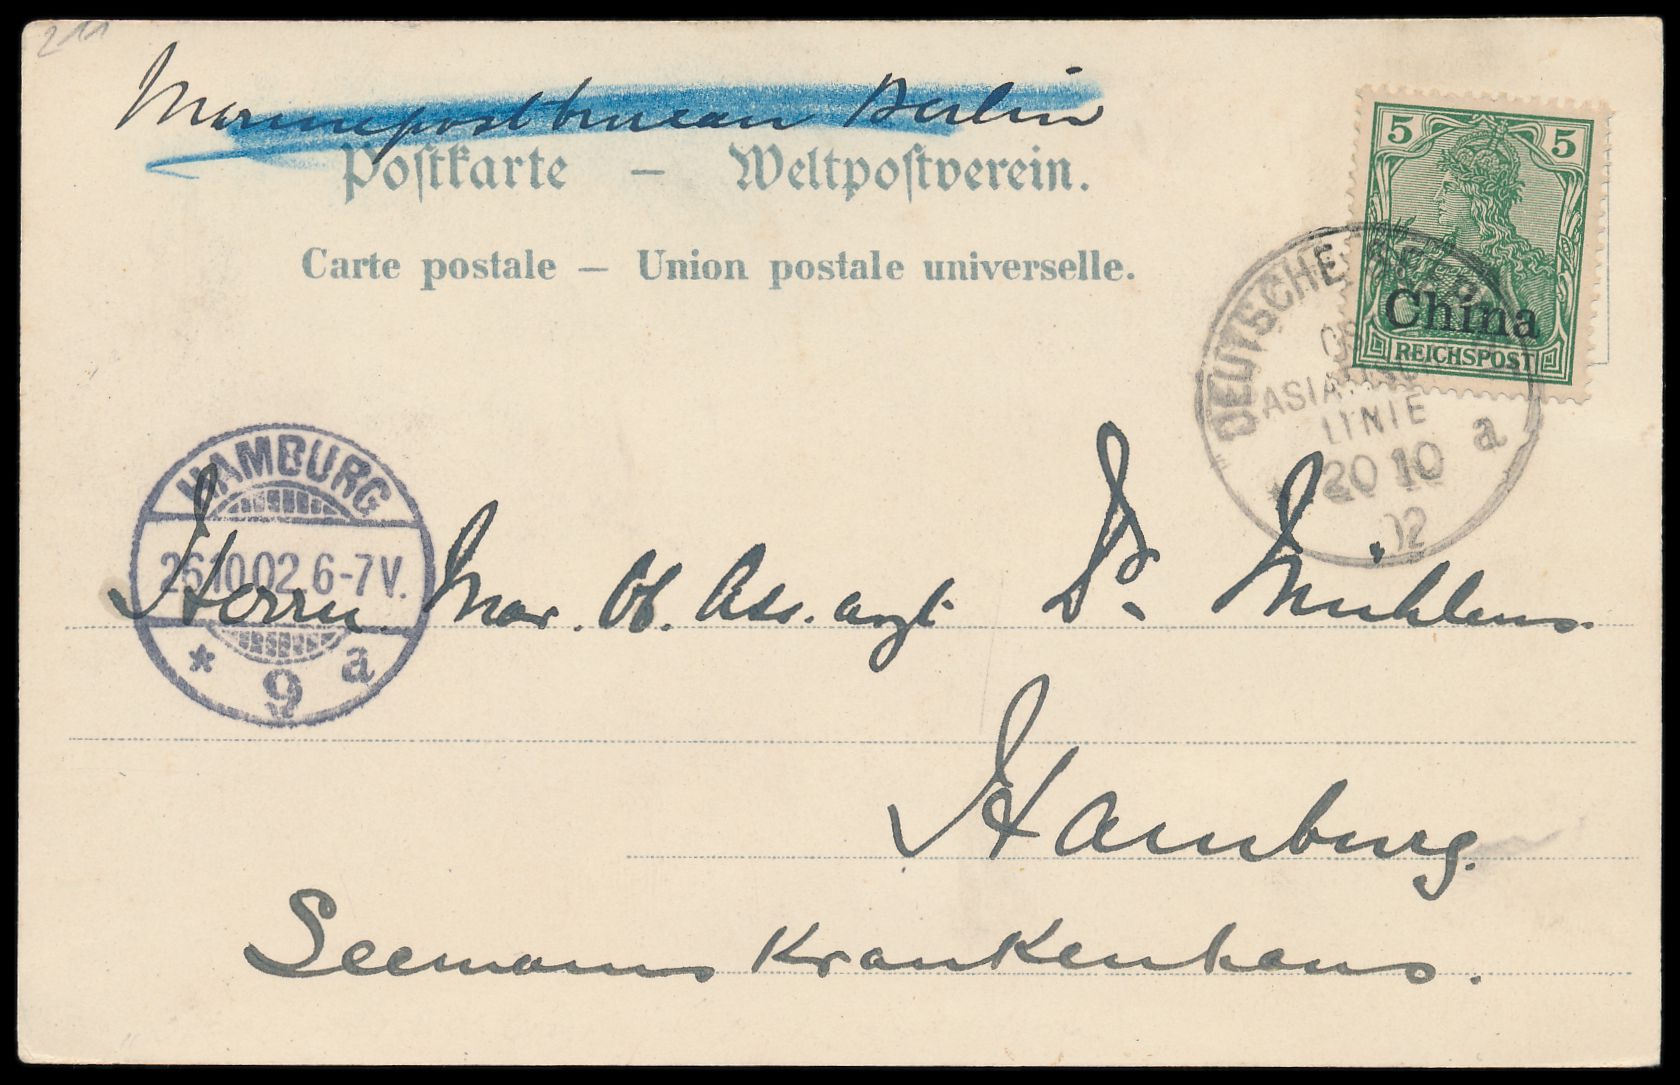 211
Marinepostbureau Berlin
Postkarte – Weltpostverein.
Carte postale – Union postale universelle.
5 5
China
REICHSPOST
DEUTSCHE SEEPOST
OST
ASIATISCHE
LINIE
a
* 20 10
02
HAMBURG
26.10.02.6-7V.
* 9 a
Herrn Mar. Ob. Ass. arzt Dr. Mühlens.
Hamburg.
Seemanns Krankenhaus.